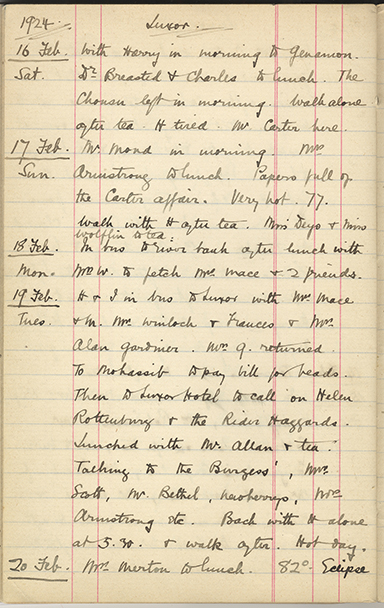 1924. Luxor.
16 Feb. With Harry in morning to Genamon.
Sat. Dr Breasted & Charles to lunch. The
Chonsu left in morning. Walk alone
after tea. H tired. Mr Carter here.
17 Feb. Mr Mond in morning. Mrs
Sun. Armstrong to lunch. Papers full of
the Carter affair. Very hot. 77.
Walk with H after tea. Mrs Deys & Miss
Wolfflin to tea.
18 Feb. In bus to river bank after lunch with
Mon. Mrs W. to fetch Mrs Mace & 2 friends.
19 Feb. H & I in bus to Luxor with Mr Mace
Tues. & M. Mrs Winlock & Frances & Mrs
Alan Gardiner. Mrs G. returned.
To Mohassib to pay bill for beads.
Then to Luxor Hotel to call on Helen
Rottenburg & the Rider Haggards.
Lunched with Mr Allan & tea.
Talking to the Burgess', Mrs
Scott, Mr Bethel, Newberrys, Mrs
Armstrong etc. Back with H alone
at 5.30. & walk after. Hot day.
20 Feb. Mrs Merton to lunch. 82°. Eclipse